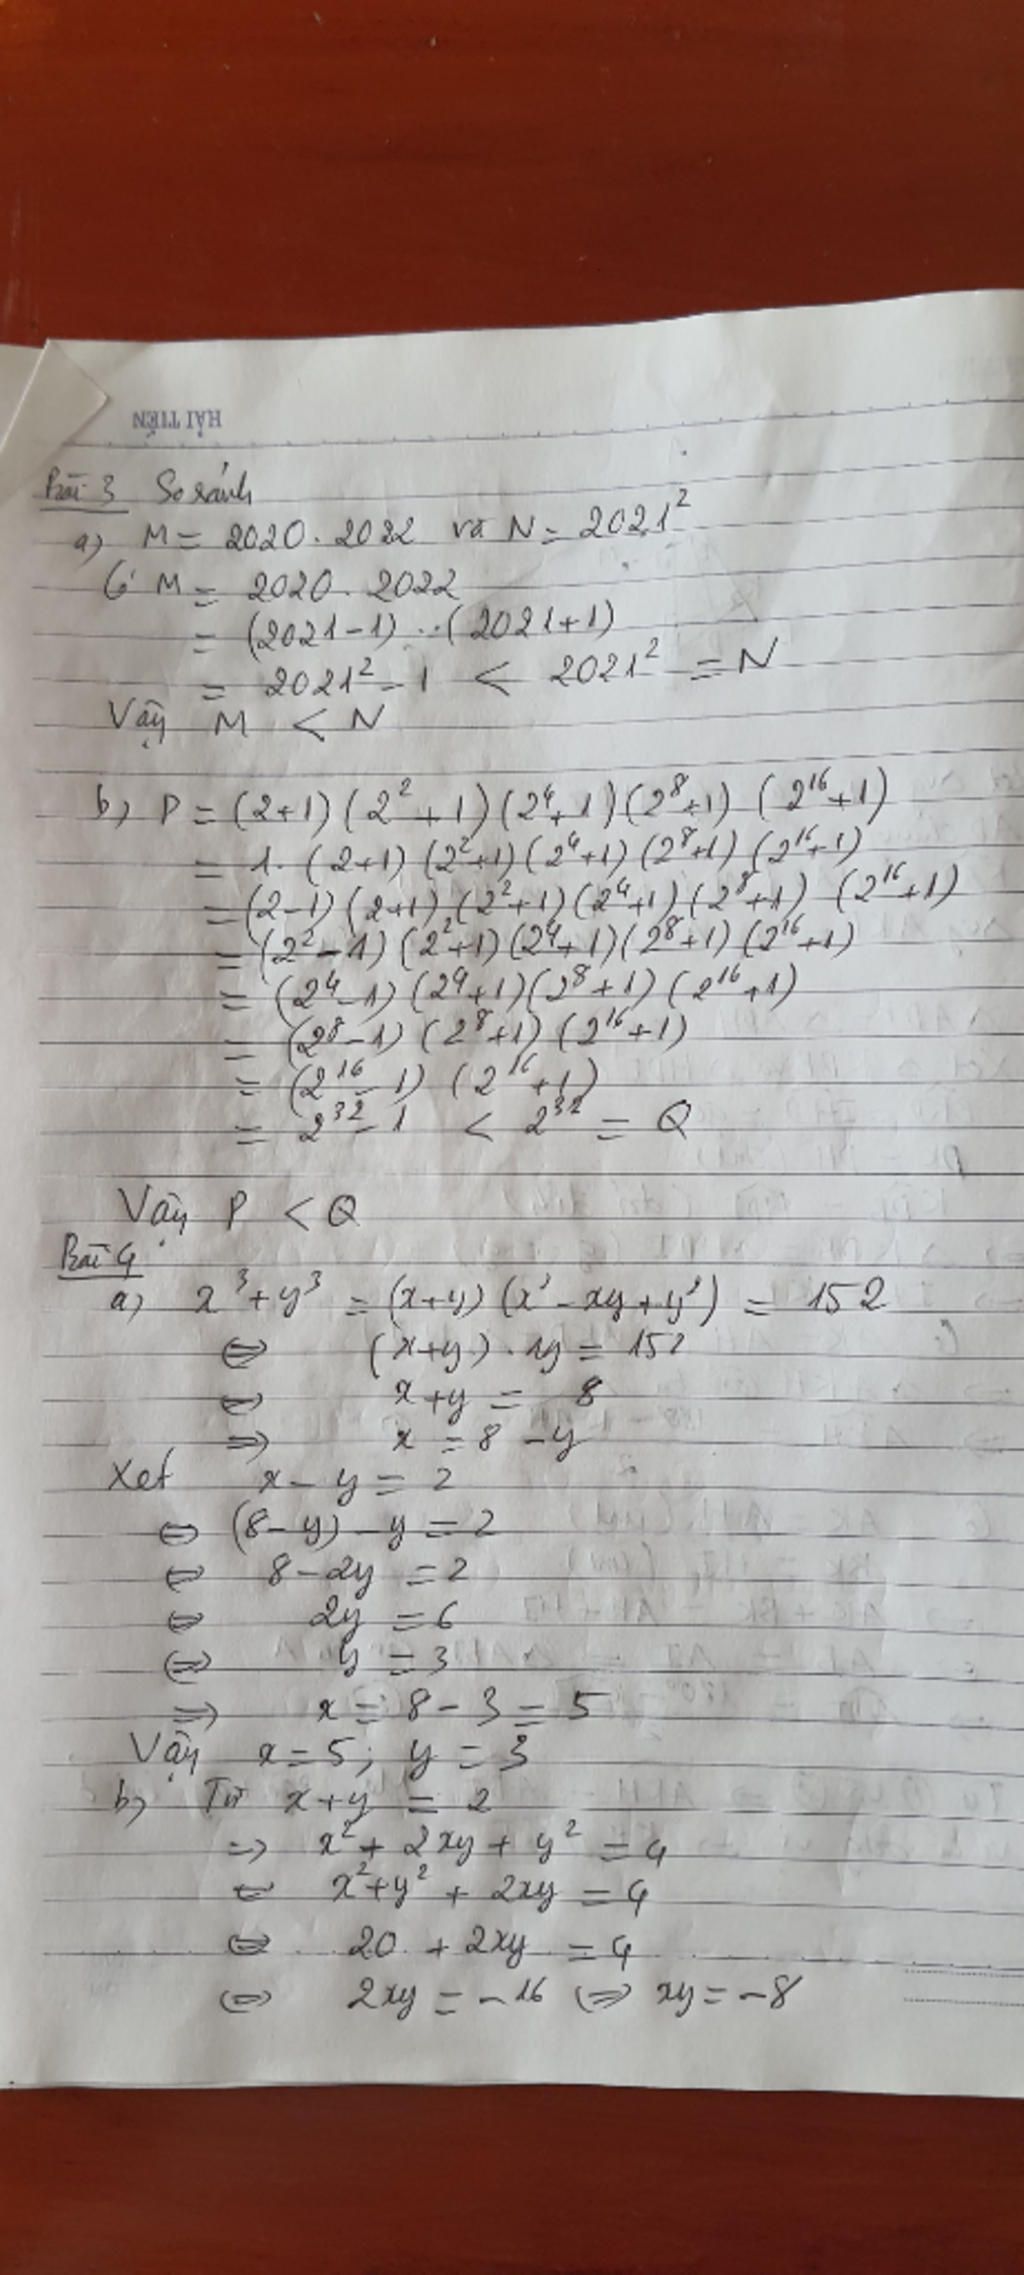 HẢI TIẾN
Bài 3 So sánh
a) M = 2020 . 2022 và N = 2021²
Có M = 2020 . 2022
= (2021-1) . (2021+1)
= 2021² - 1 < 2021² = N
Vậy M < N
b) P = (2+1) (2² + 1) (2⁴ + 1) (2⁸+1) (2¹⁶+1)
= 1. (2+1) (2²+1) (2⁴+1) (2⁸+1) (2¹⁶+1)
= (2-1) (2+1) (2²+1) (2⁴+1) (2⁸+1) (2¹⁶+1)
= (2² - 1) (2²+1) (2⁴+1) (2⁸+1) (2¹⁶+1)
= (2⁴-1) (2⁴+1) (2⁸+1) (2¹⁶+1)
= (2⁸-1) (2⁸+1) (2¹⁶+1)
= (2¹⁶-1) (2¹⁶+1)
= 2³²-1 < 2³² = Q
Vậy P < Q
Bài 4
a) x³ + y³ = (x+y) (x² - xy + y²) = 152
⇔ (x+y) . 19 = 152
⇔ x+y = 8
⇒ x = 8 - y
Xét x - y = 2
⇔ (8-y) - y = 2
⇔ 8 - 2y = 2
⇔ 2y = 6
⇔ y = 3
⇒ x = 8 - 3 = 5
Vậy x = 5; y = 3
b) Từ x+y = 2
⇒ x² + 2xy + y² = 4
⇔ x² + y² + 2xy = 4
⇔ 20 + 2xy = 4
⇔ 2xy = -16 ⇔ xy = -8